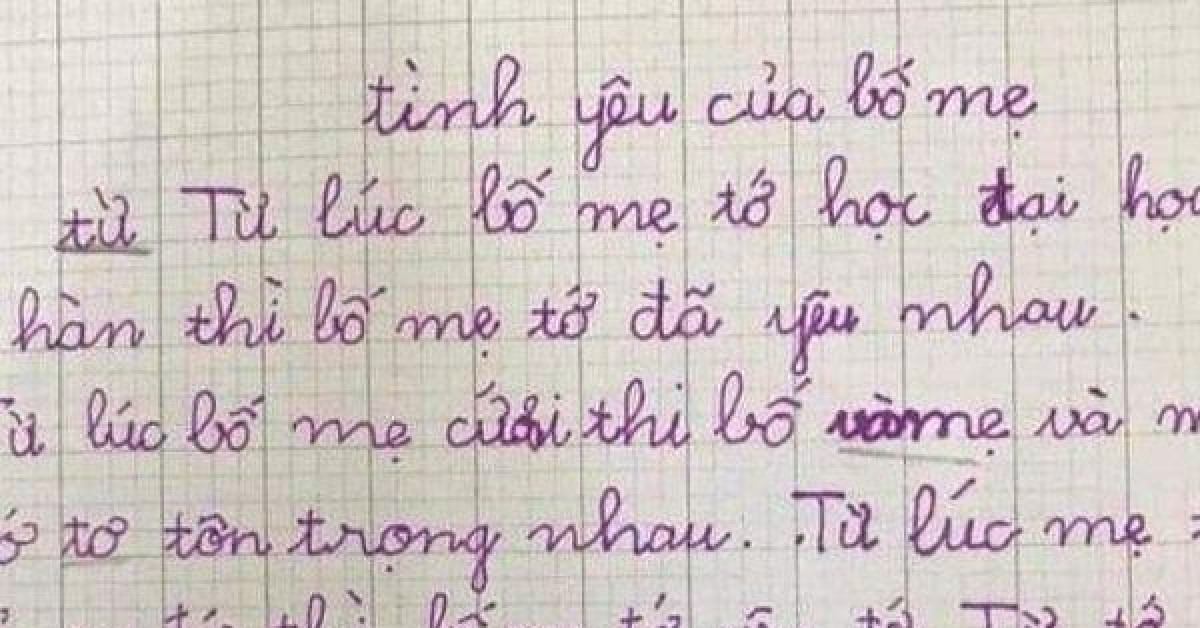 tình yêu của bố mẹ
từ Từ lúc bố mẹ tớ học đại học
hàn thì bố mẹ tớ đã yêu nhau.
lúc bố mẹ cưới thi bố và mẹ và
tơ tôn trọng nhau. Từ lúc mẹ